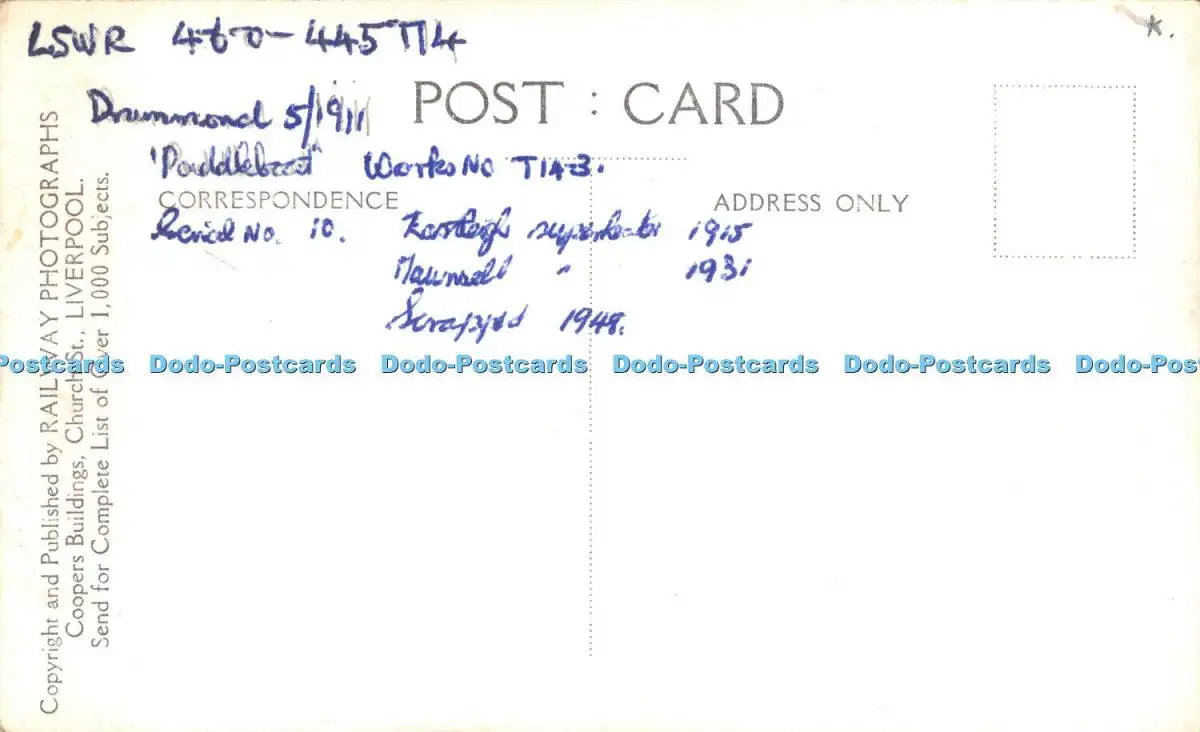 LSWR 460-445 T14
Drummond 5/1911
POST : CARD
"Paddleboat" Works No T14B.
CORRESPONDENCE
ADDRESS ONLY
Serial No. 10. Eastleigh superheater 1915
Maunsell " 1931
Scrapped 1948.
Dodo-Postcards Dodo-Postcards Dodo-Postcards Dodo-Postcards Dodo-Postcards Dodo-Postcards
Copyright and Published by RAILWAY PHOTOGRAPHS
Coopers Buildings, Church St., LIVERPOOL.
Send for Complete List of Over 1,000 Subjects.